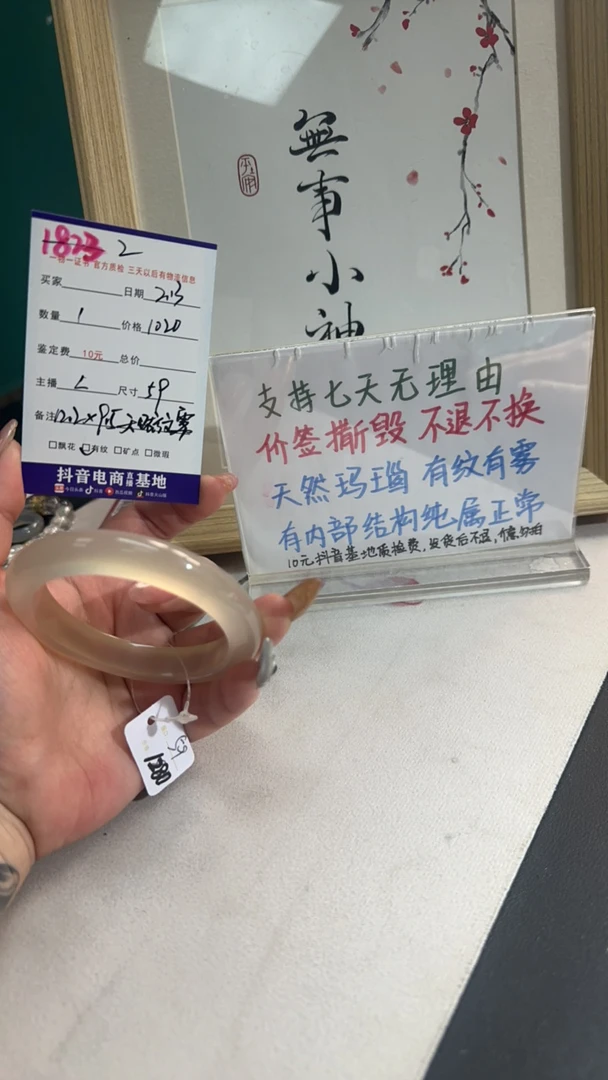 無事小神
1823 2
一物一证书 官方质检 三天以后有物流信息
买家 日期 2.13
数量 1 价格 1020
鉴定费 10元 总价
主播 L 尺寸 59
备注 12.2×9.5 天然纹雾
□飘花 □有纹 □矿点 □微瑕
抖音电商直播基地
今日头条 抖音 西瓜视频 抖音火山版
支持七天无理由
价签撕毁 不退不换
天然玛瑙 有纹有雾
有内部结构纯属正常
10元抖音基地质检费,发货后不退,介意勿拍
59
1580